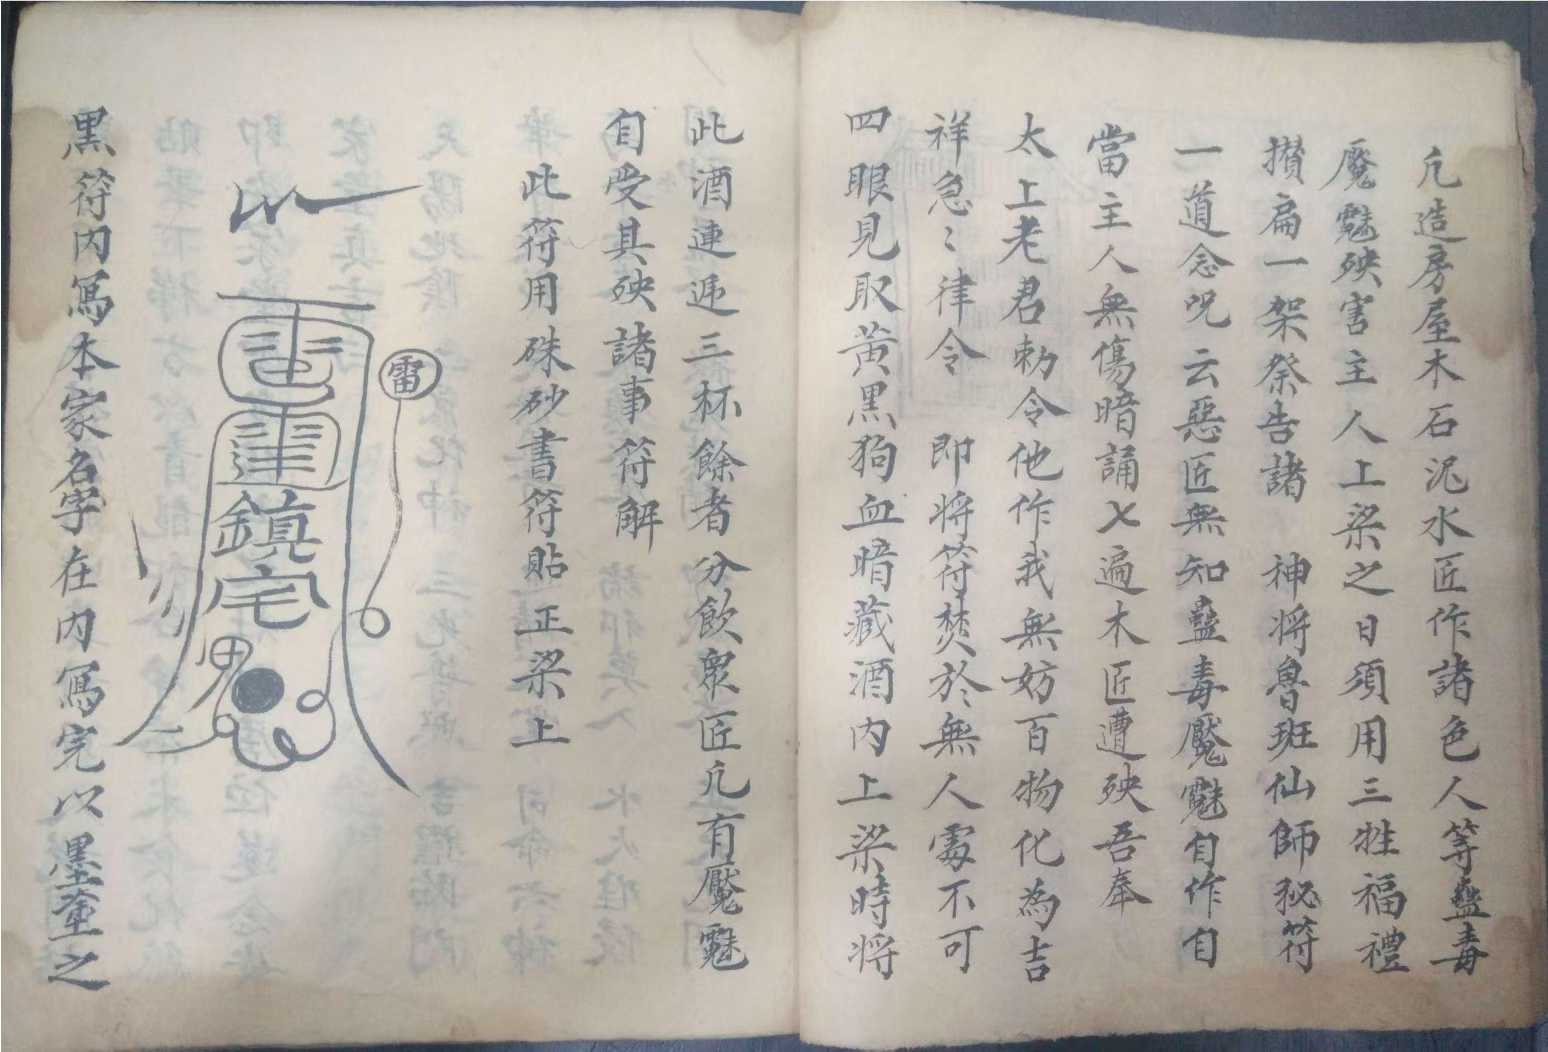 凢造房屋木石泥水匠作諸色人等蠱毒
魘魅殃害主人上梁之日須用三牲福禮
攅扁一架祭告諸 神將魯班仙師秘符
一道念咒云惡匠無知蠱毒魘魅自作自
當主人無傷暗誦七遍木匠遭殃吾奉
太上老君勅令他作我無妨百物化為吉
祥急〻律令 即將符焚於無人處不可
四眼見取黃黑狗血暗藏酒内上梁時將
此酒連逓三杯餘者分飲衆匠凢有魘魅
自受其殃諸事符解
此符用硃砂書符貼正梁上
雷
鎮宅
黒符内寫本家名字在内寫完以墨塗之